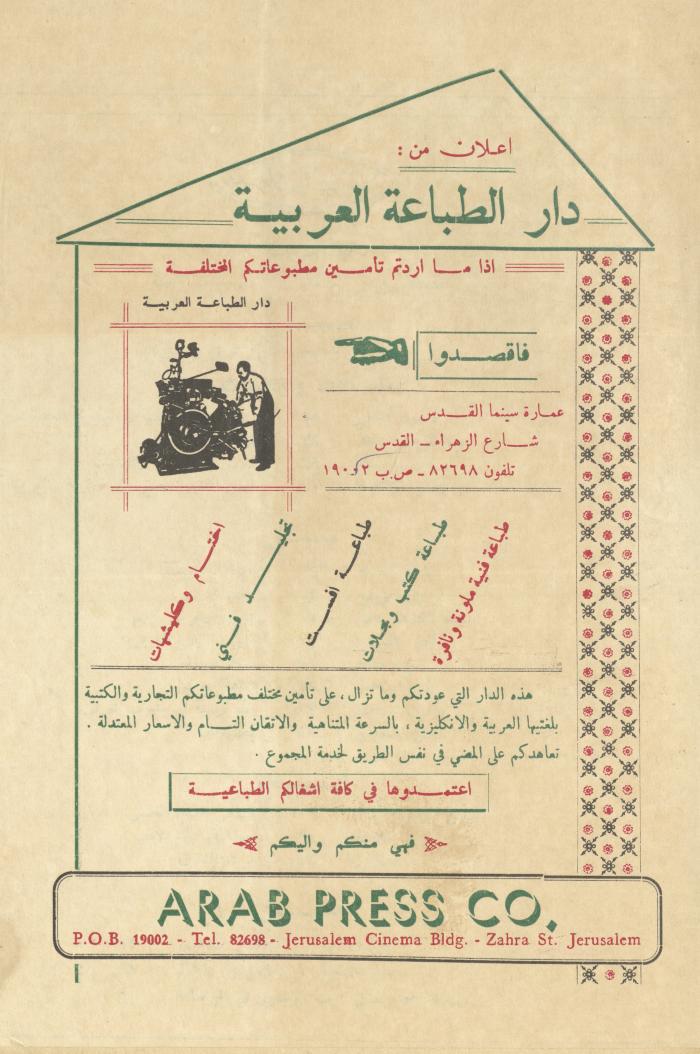 اعلان من :
دار الطباعة العربية
اذا ما اردتم تأمين مطبوعاتكم المختلفة
دار الطباعة العربية
فاقصدوا
عمارة سينما القدس
شارع الزهراء - القدس
تلفون ٨٢٦٩٨ - ص.ب ١٩٠٠٢
طباعة فنية ملونة ونافرة
طباعة كتب ومجلات
طباعة افست
تجليد فني
اختام وكليشهات
هذه الدار التي عودتكم وما تزال ، على تأمين مختلف مطبوعاتكم التجارية والكتبية
بلغتيها العربية والانكليزية ، بالسرعة المتناهية والاتقان التام والاسعار المعتدلة .
تعاهدكم على المضي في نفس الطريق لخدمة المجموع .
اعتمدوها في كافة اشغالكم الطباعية
فهي منكم واليكم
ARAB PRESS CO.
P.O.B. 19002 - Tel. 82698 - Jerusalem Cinema Bldg. - Zahra St. Jerusalem